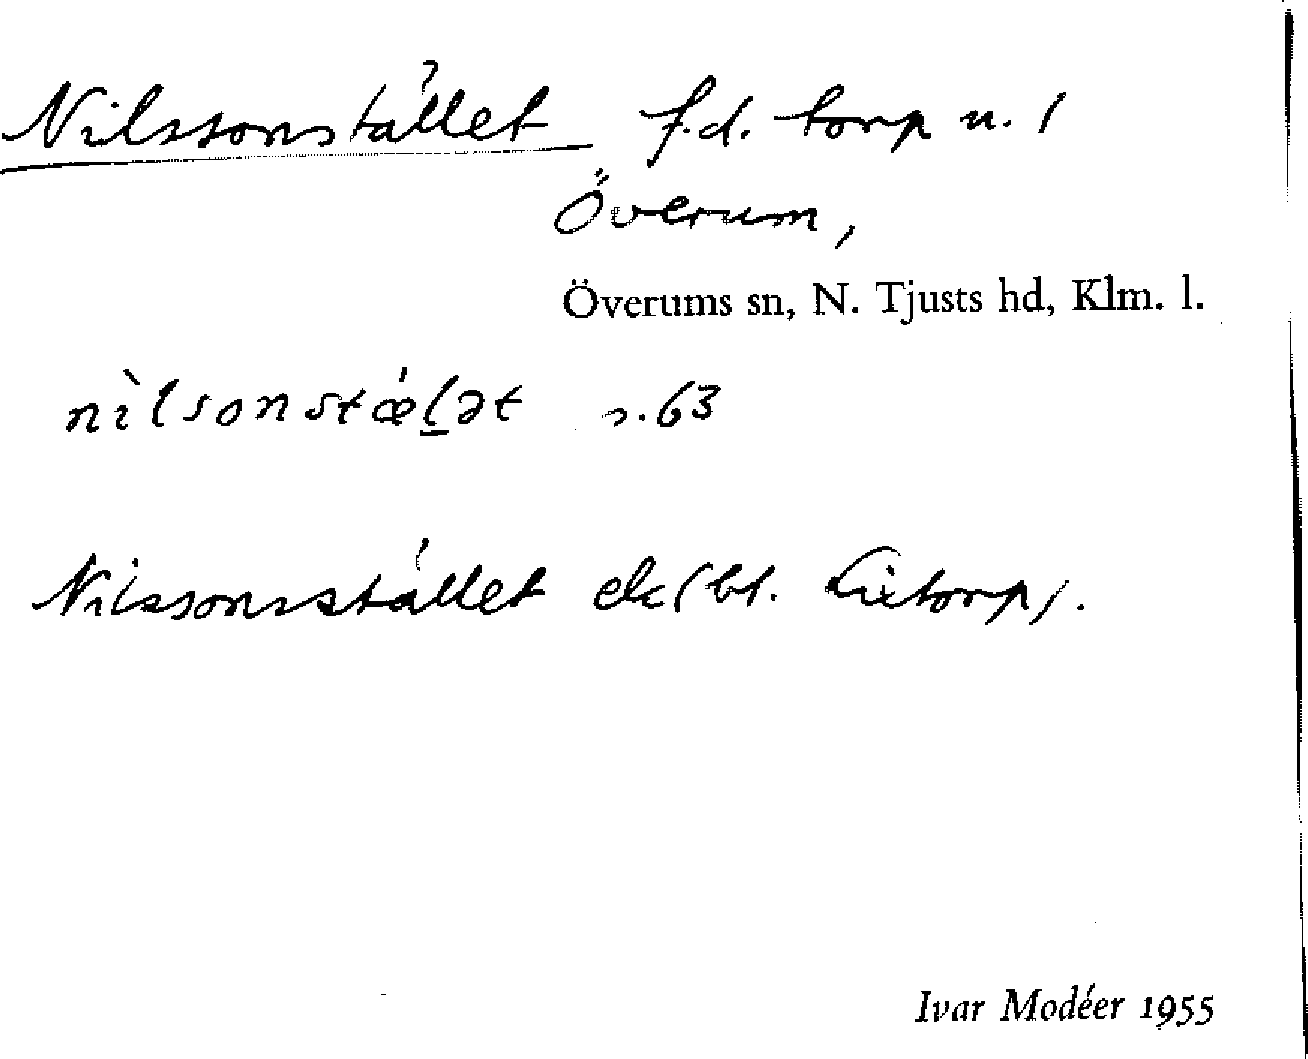 Nilssonstället f.d. torp u. 1
Överum,
Överums sn, N. Tjusts hd, Klm. l.
nìlsonstǽl̠ət s. 63
Nilssonsstället ek (bl.
Ivar Modéer 1955